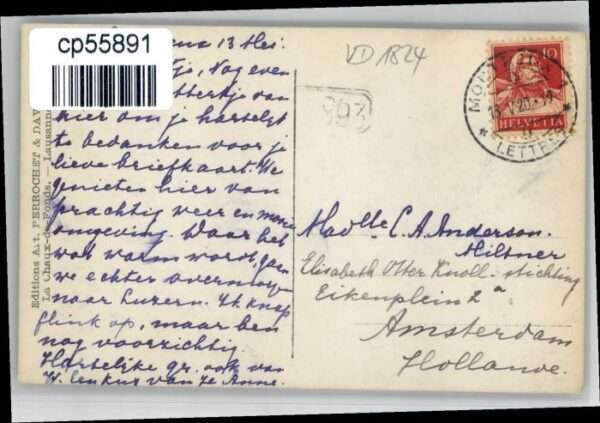 cp55891
VD 1824
13 Mei.
Nog even
van
hier om je hartelijk
te bedanken voor je
lieve briefkaart. We
genieten hier van
prachtig weer en mooie
omgeving. Daar het
wat warm wordt, gaan
we echter overmorgen
naar Luzern. Ik knap
flink op, maar ben
nog voorzichtig.
Hartelijke gr. ook van
W. en kus van je Anne.
Editions Art. PERROCHET & DAV
La Chaux-de-Fonds. — Lausanne
10
HELVETIA
MONTREUX
LETTRES
203
Madlle C. A. Anderson.
Hiltner
Elisabeth Otter Knoll-stichting
Eikenplein 2a
Amsterdam
Hollande.